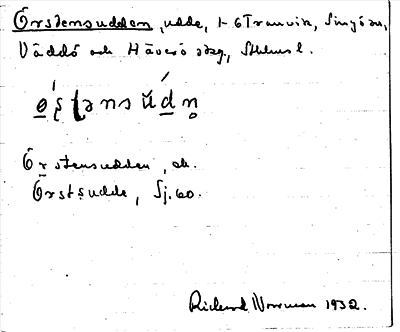 Örstensudden, udde, 1-6 Tranvik, Singö sn,
Väddö och Häverö sdg, Sthlms l.
Örstensudden, ek.
Örstsudde, Sj.60.
Richard Norrman 1932.